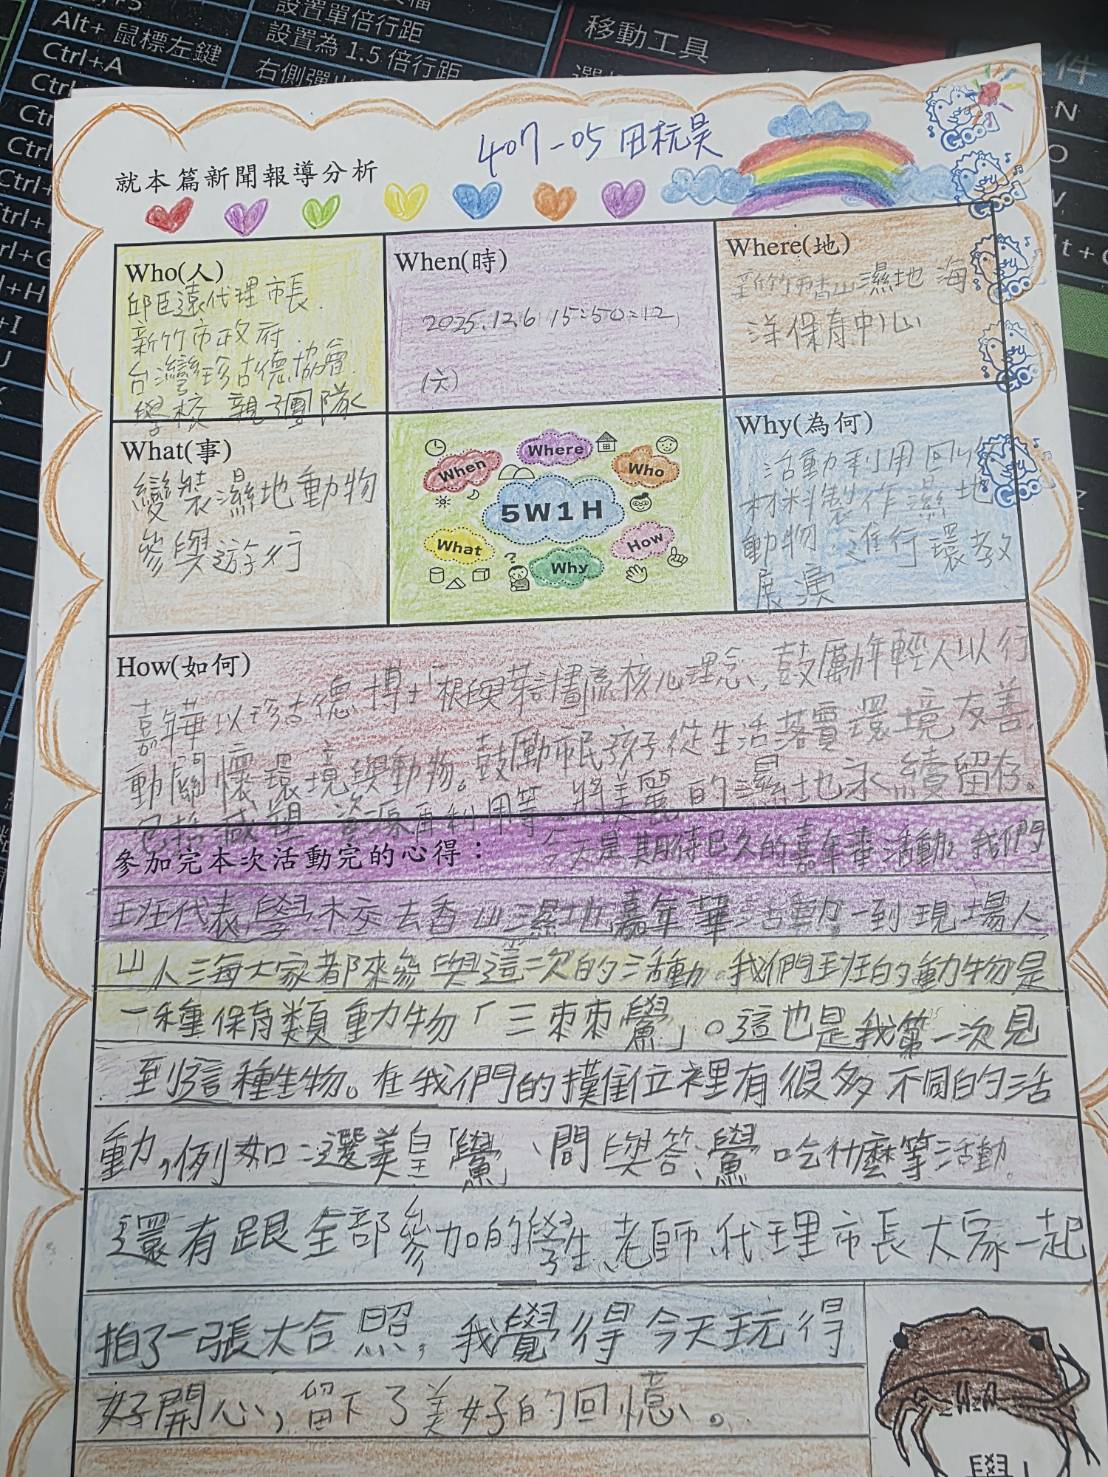 Alt+ 鼠標左鍵
Ctrl+A
設置單倍行距
設置為 1.5 倍行距
移動工具
就本篇新聞報導分析
407-05 田杭昊
GOOD
GOOD
GOOD
GOOD
GOOD
Who(人)
邱臣遠代理市長
新竹市政府
台灣珍古德協會
學校 親子團隊
When(時)
2025.12.6 15:50:12
(六)
Where(地)
新竹市香山濕地 海
洋保育中心
What(事)
變裝濕地動物
參與遊行
When
Where
Who
5W1H
What
How
Why
Why(為何)
活動利用回收
材料製作濕地
動物 進行環教
展演
How(如何)
嘉年華以珍古德博士「根與芽計劃為核心理念,鼓勵年輕人以行
動關懷環境與動物。鼓勵市民孩子從生活落實環境友善,
包括減塑、資源再利用等,將美麗的濕地永續留存。
參加完本次活動完的心得:
今天是期待已久的嘉年華活動,我們
班代表學校去香山濕地嘉年華活動。一到現場人
山人海大家都來參與這次的活動。我們班的動物是
一種保育類動物「三棘鱟」。這也是我第一次見
到這種生物。在我們的攤位裡有很多不同的活
動,例如:選美皇「鱟」、問與答鱟吃什麼等活動。
還有跟全部參加的學生、老師、代理市長大家一起
拍了一張大合照,我覺得今天玩得
好開心,留下了美好的回憶。